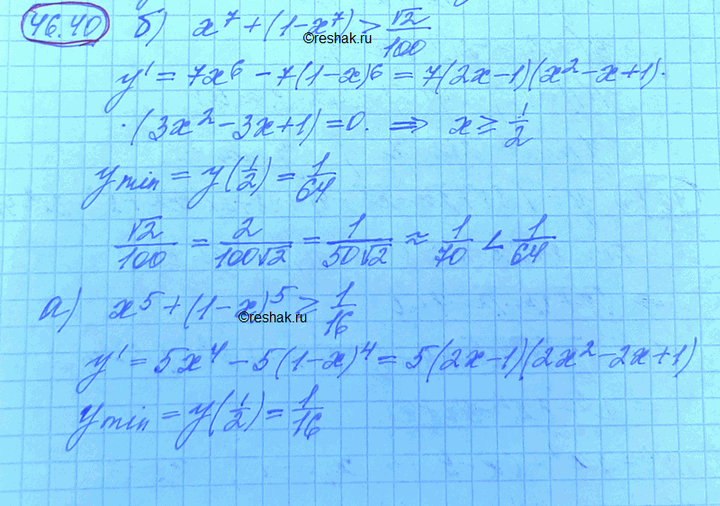 46.40 б) x⁷ + (1-x⁷) > √2/100
©reshak.ru
y' = 7x⁶ - 7(1-x)⁶ = 7(2x-1)(x²-x+1)·
·(3x²-3x+1) = 0. ⇒ x ≥ 1/2
y min = y(1/2) = 1/64
√2/100 = 2/100√2 = 1/50√2 ≈ 1/70 < 1/64
а) x⁵ + (1-x)⁵ ≥ 1/16
©reshak.ru
y' = 5x⁴ - 5(1-x)⁴ = 5(2x-1)(2x²-2x+1)
y min = y(1/2) = 1/16